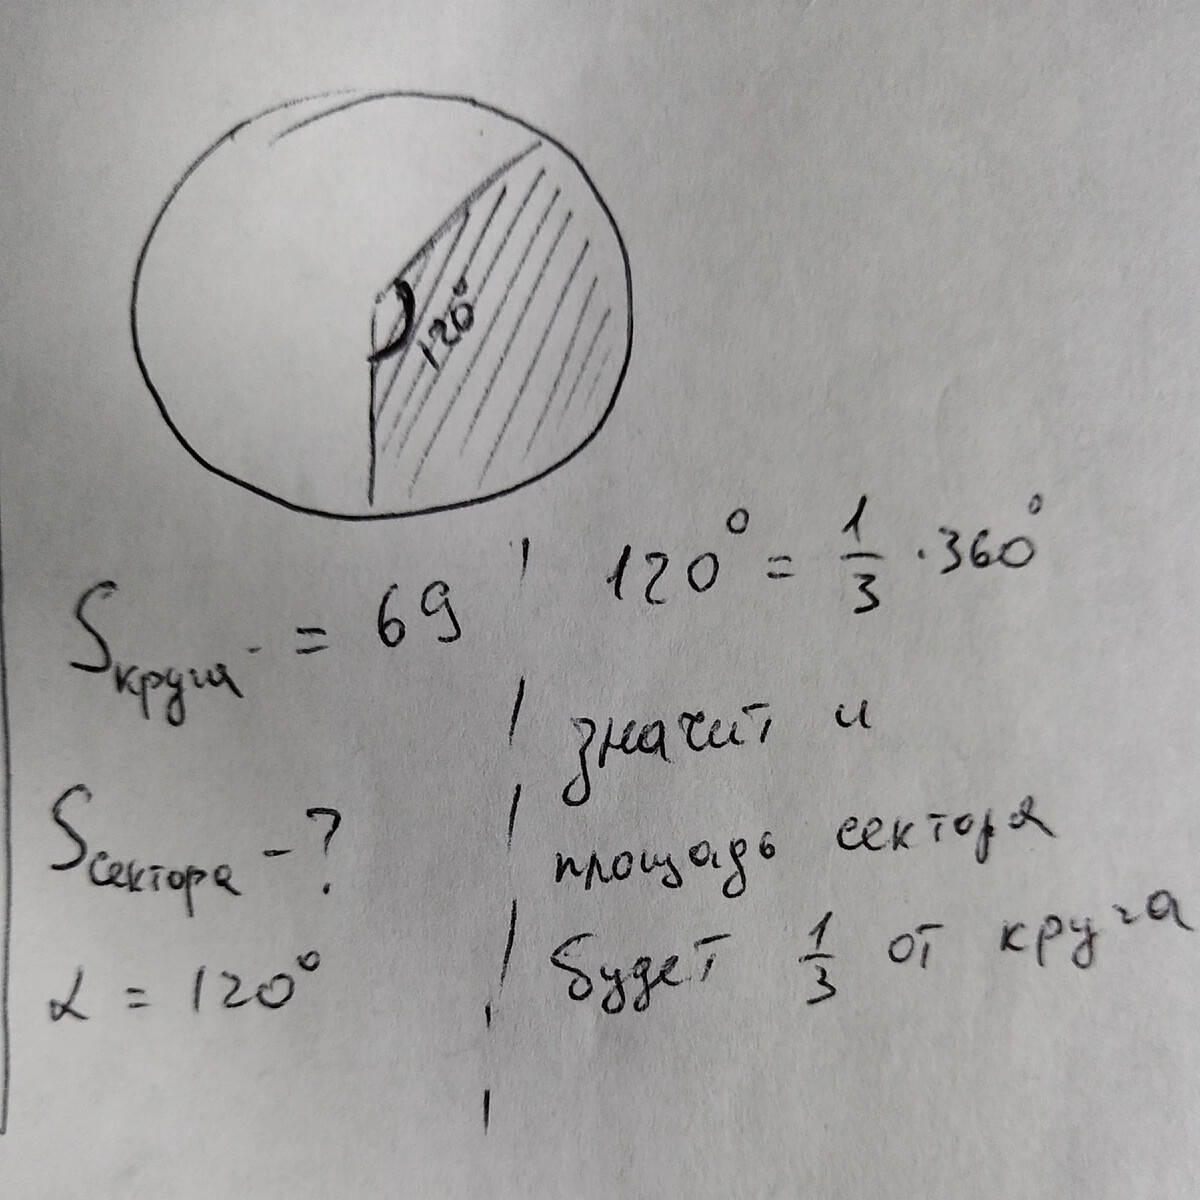 120°
S круга = 69
S сектора - ?
α = 120°
120° = 1/3 · 360°
значит и
площадь сектора
будет 1/3 от круга